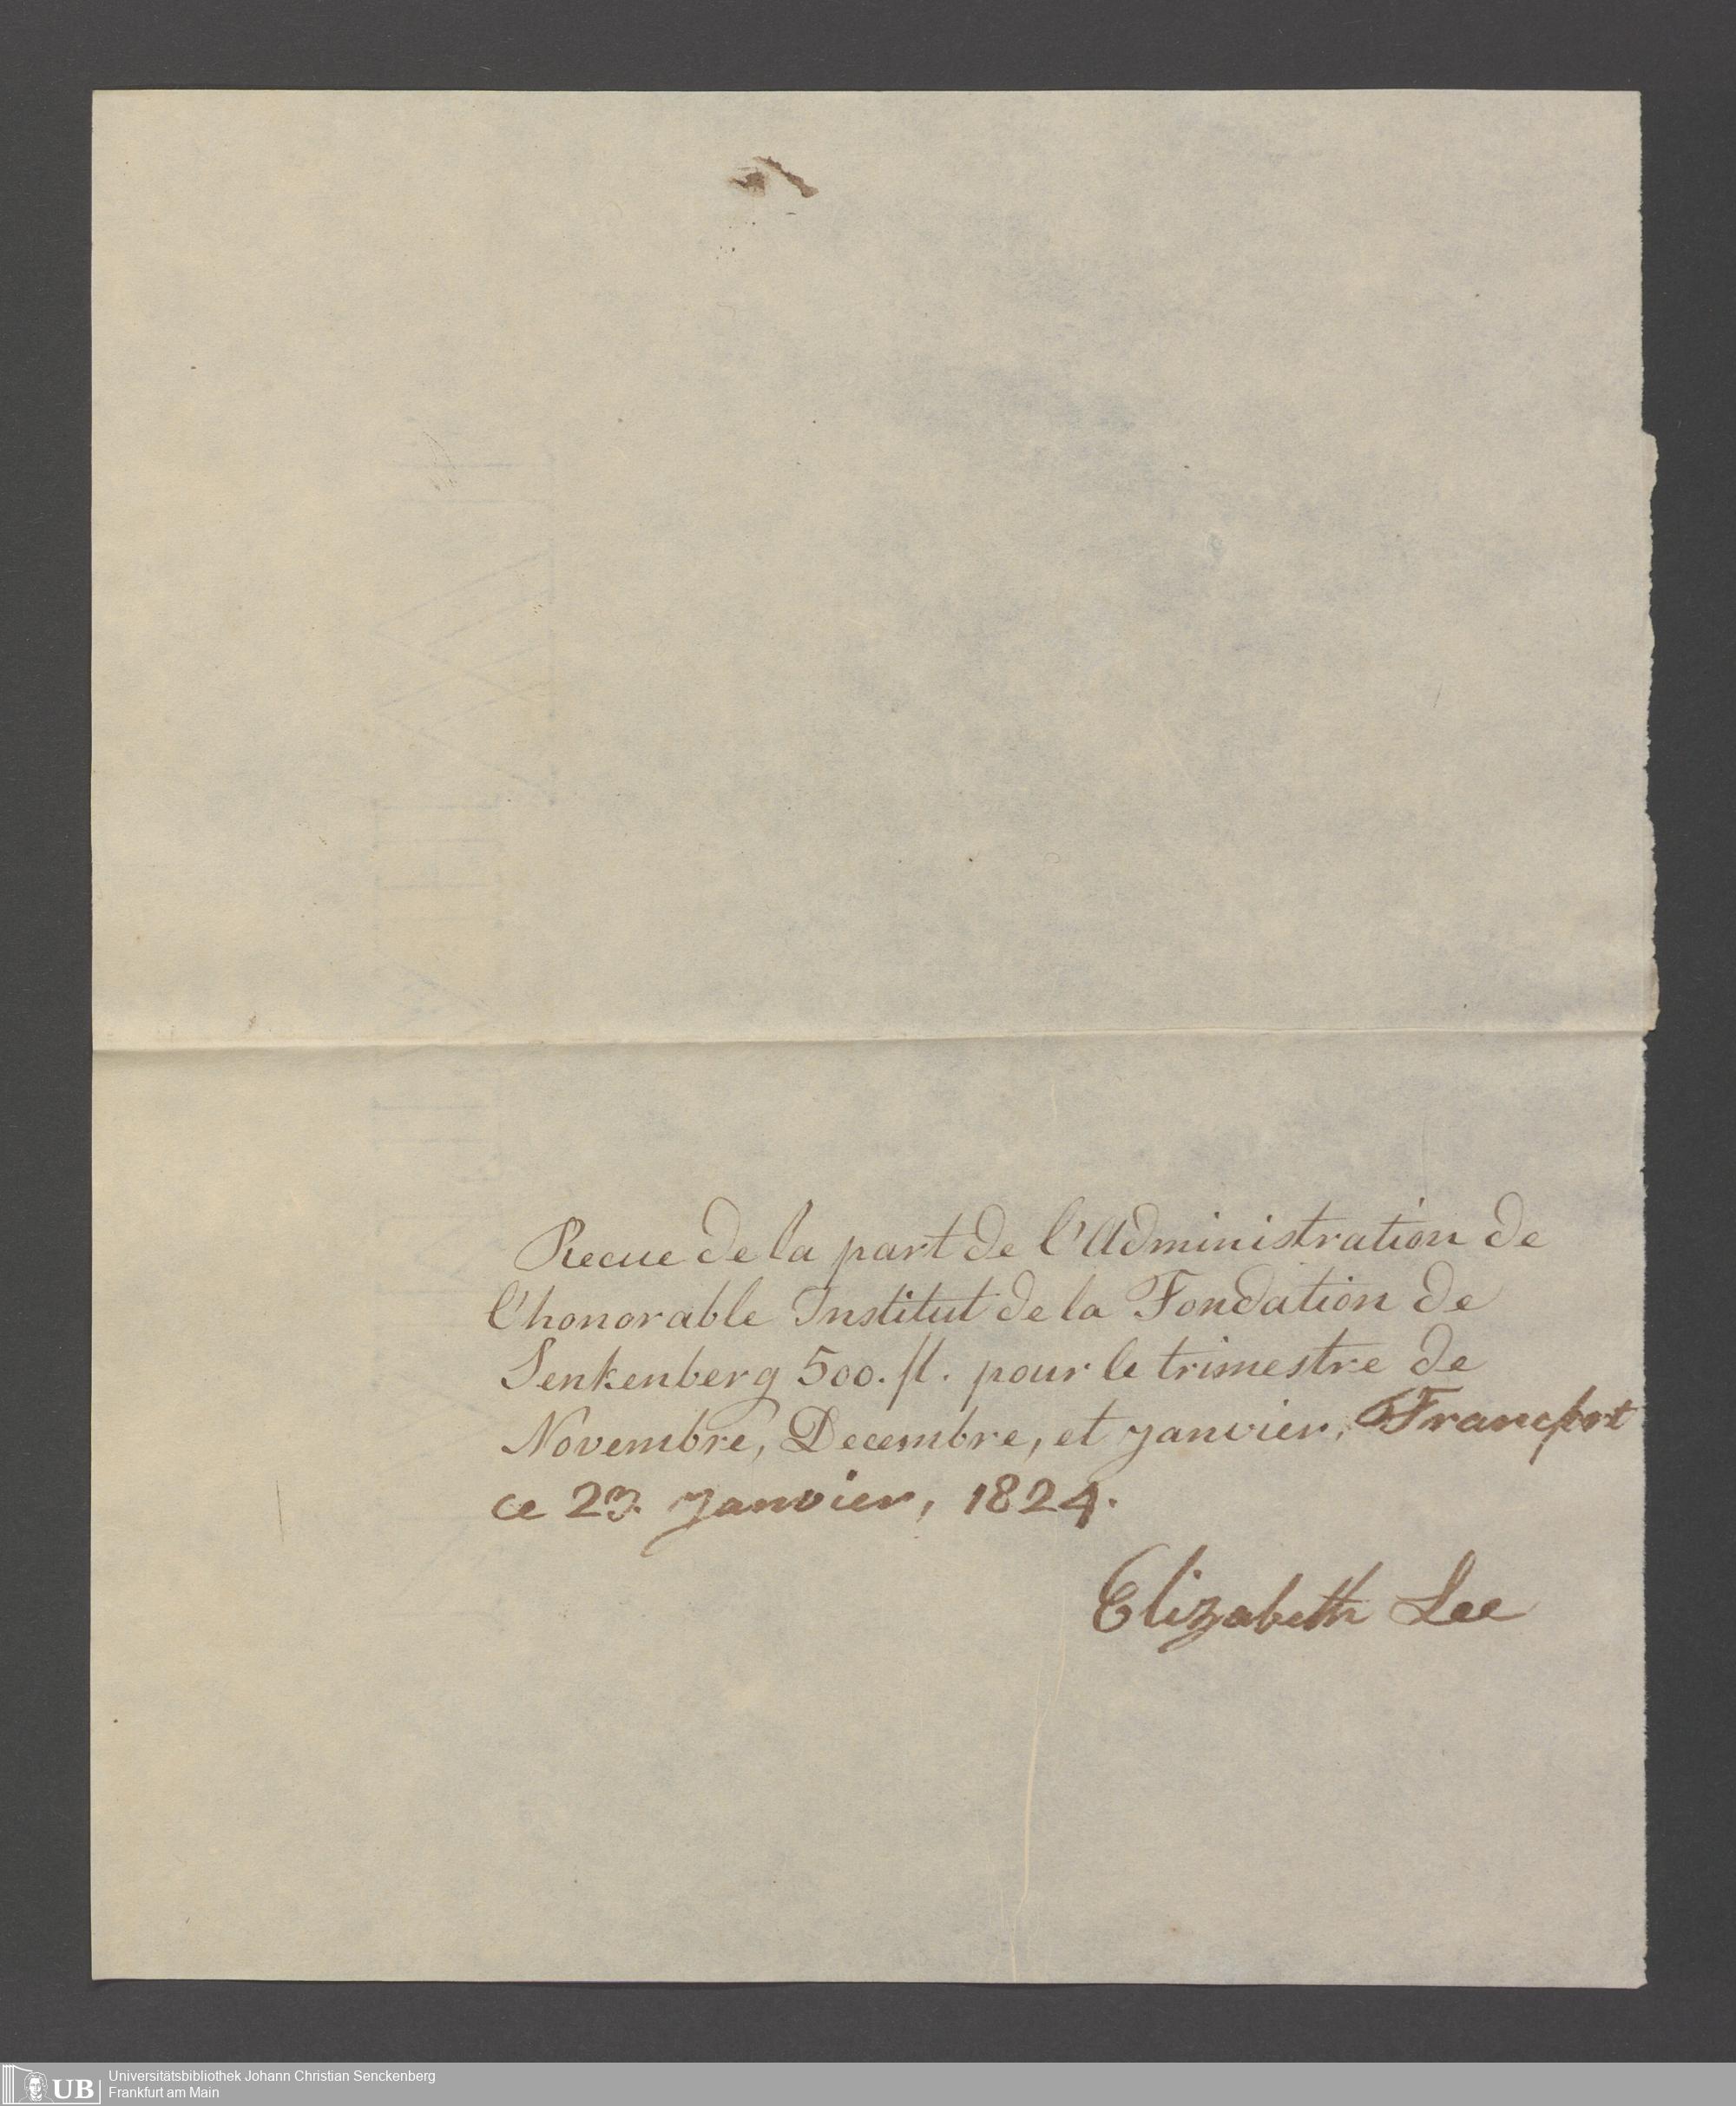 Recue de la part de l'Administration de
l'honorable Institut de la Fondation de
Senkenberg 500. fl. pour le trimestre de
Novembre, Decembre, et Janvier, Francfort
ce 23. Janvier, 1824.
Elizabeth Lee
UB
Universitätsbibliothek Johann Christian Senckenberg
Frankfurt am Main